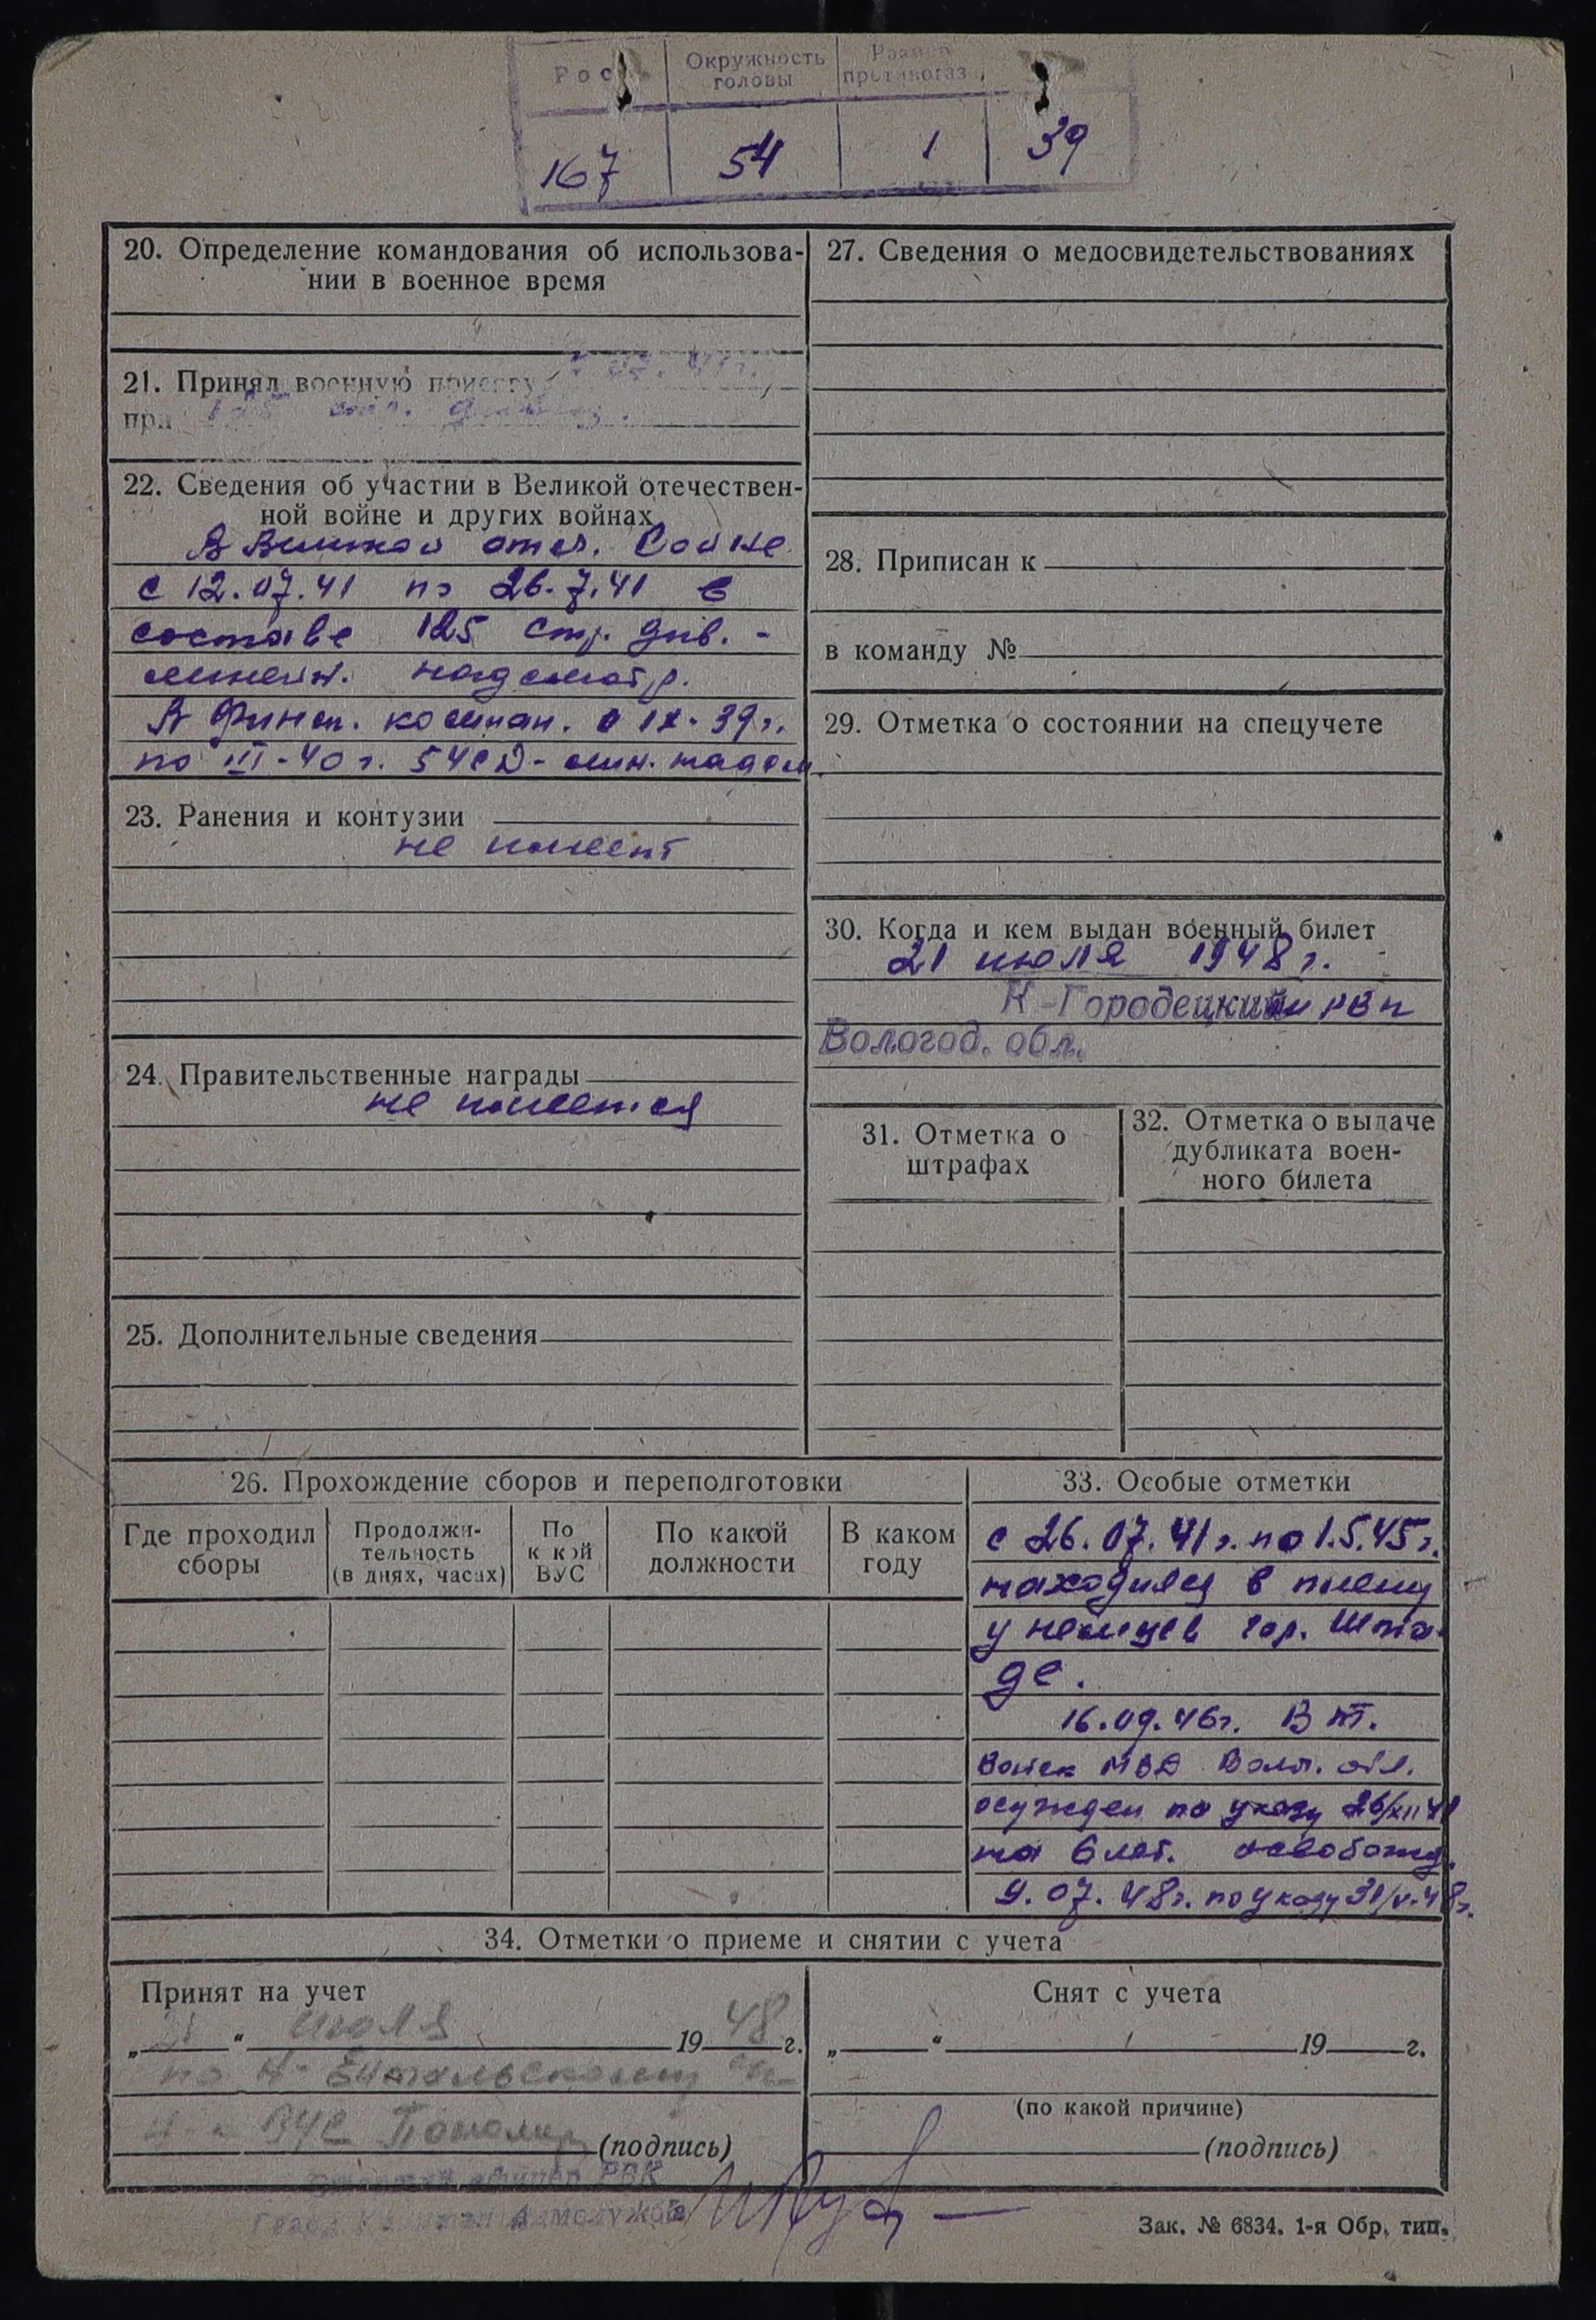 Рост
Окружность головы
Размер противогаза
167
54
1
39
20. Определение командования об использова-
нии в военное время
21. Принял военную присягу
при
22. Сведения об участии в Великой отечествен-
ной войне и других войнах
В Великой отеч. войне
с 12.07.41 по 26.7.41 в
составе 125 стр. див. -
линейн. надсмотр.
В Финск. компан. с IX-39 г.
по III-40 г. 54 СД - лин. надсм.
23. Ранения и контузии
не имеет
24. Правительственные награды
не имеется
25. Дополнительные сведения
27. Сведения о медосвидетельствованиях
28. Приписан к
в команду №
29. Отметка о состоянии на спецучете
30. Когда и кем выдан военный билет
21 июля 1948 г.
К-Городецким РВК
Вологод. обл.
31. Отметка о
штрафах
32. Отметка о выдаче
дубликата воен-
ного билета
26. Прохождение сборов и переподготовки
Где проходил
сборы
Продолжи-
тельность
(в днях, часах)
По
какой
ВУС
По какой
должности
В каком
году
33. Особые отметки
с 26.07.41 г. по 1.5.45 г.
находился в плену
у немцев гор. Шта-
де.
16.09.46 г. В тр.
войск МВД Вол. обл.
осужден по указу 26/XII 41
на 6 лет. освобожд.
9.07.48 г. по указу 31/V-48 г.
34. Отметки о приеме и снятии с учета
Принят на учет
„21“ июля 1948 г.
по К-Енгальскому с/с
ВУС
(подпись)
РВК
Снят с учета
„ “ 19 г.
(по какой причине)
(подпись)
Зак. № 6834. 1-я Обр. тип.